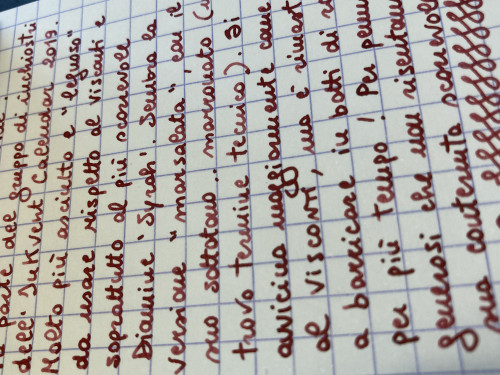 Parte del Gruppo di inchiostri
dell' InkVent Calendar 2019.
Molto più asciutto e "legnoso"
da usare rispetto al Visconti e
soprattutto al più scorrevole
Diamine 'Syrah'. Sembra la
versione "marsalata" con il
suo sottotono marronato (
trovo termine tecnico). Si
avvicina maggiormente come
al Visconti, ma è rivest
a barricare in botti di
per più tempo! Per penn
generosi che non risentan
sua contenuta scorrevol